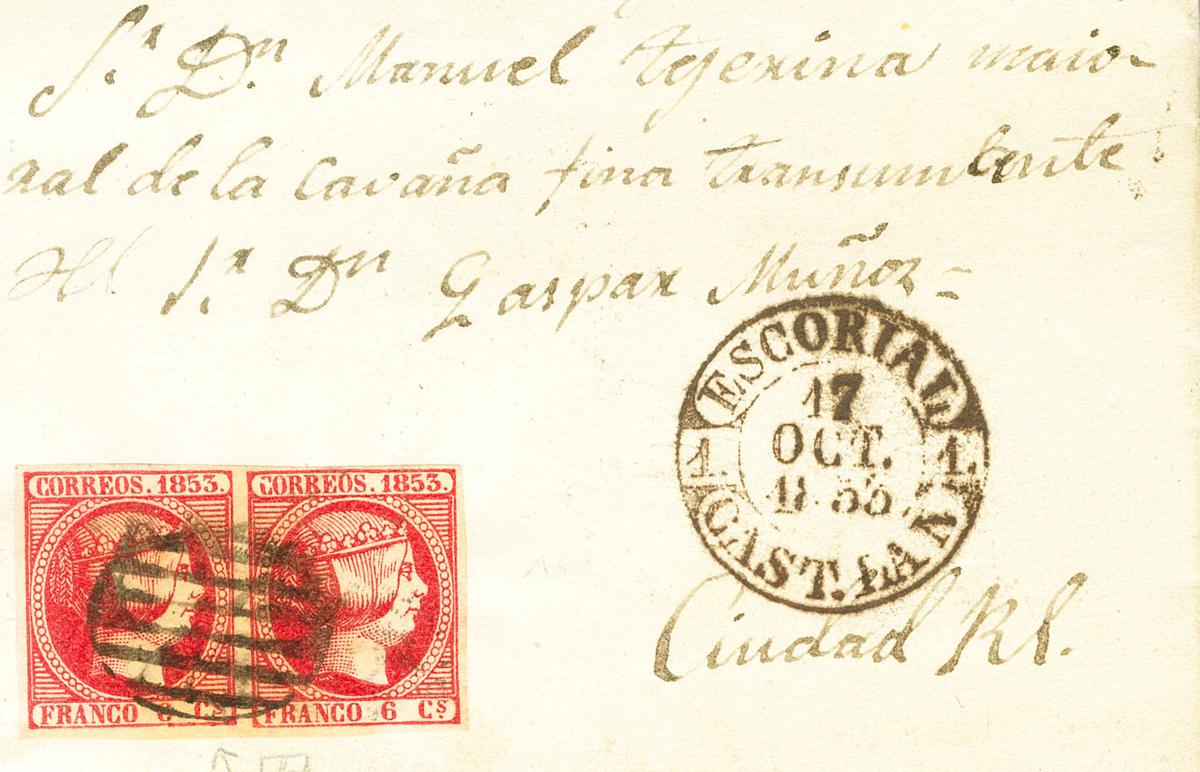 S.r D.n Manuel Tejerina maio-
ral de la Cavaña fina transumbente
Al S.r D.n Gaspar Muñoz =
ESCORIAL
17
OCT.
1853.
1. 1.
CAST. LA N.
Ciudad Rl.
CORREOS. 1853. CORREOS. 1853.
FRANCO 6 Cs FRANCO 6 Cs